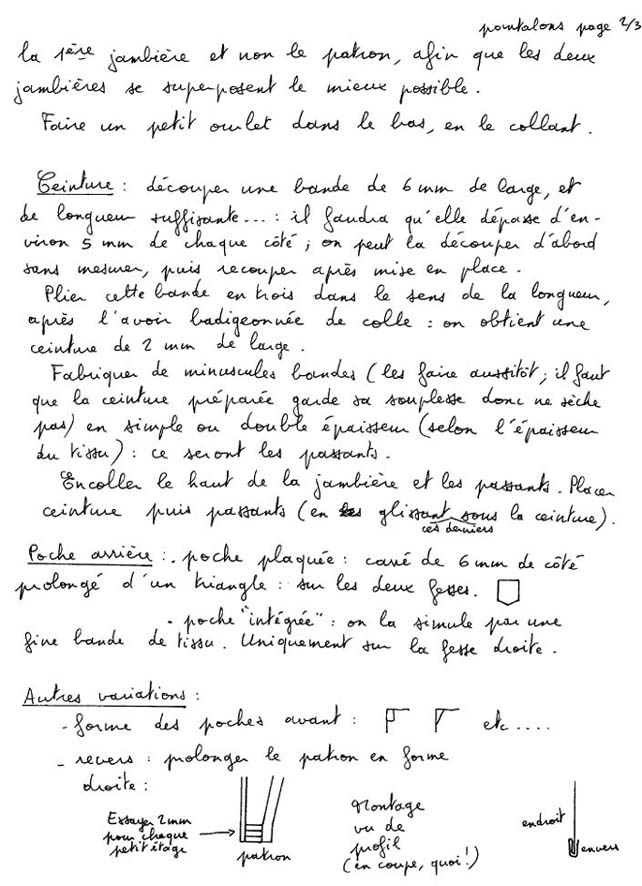 pantalons page 2/3
la 1ère jambière et non le patron, afin que les deux
jambières se superposent le mieux possible.
Faire un petit ourlet dans le bas, en le collant.
Ceinture : découper une bande de 6 mm de large, et
de longueur suffisante... : il faudra qu'elle dépasse d'en-
viron 5 mm de chaque côté ; on peut la découper d'abord
sans mesurer, puis recouper après mise en place.
Plier cette bande en trois dans le sens de la longueur,
après l'avoir badigeonnée de colle : on obtient une
ceinture de 2 mm de large.
Fabriquer de minuscules bandes (les faire aussitôt ; il faut
que la ceinture préparée garde sa souplesse donc ne sèche
pas) en simple ou double épaisseur (selon l'épaisseur
du tissu) : ce seront les passants.
Encoller le haut de la jambière et les passants. Placer
ceinture puis passants (en glissant sous la ceinture).
ces derniers
Poche arrière : . poche plaquée : carré de 6 mm de côté
prolongé d'un triangle : sur les deux fesses.
- poche "intégrée" : on la simule par une
fine bande de tissu. Uniquement sur la fesse droite.
Autres variations :
- forme des poches avant : etc....
- revers : prolonger le patron en forme
droite :
Essayer 2 mm
pour chaque
petit étage
patron
Montage
vu de
profil
(en coupe, quoi!)
endroit
envers